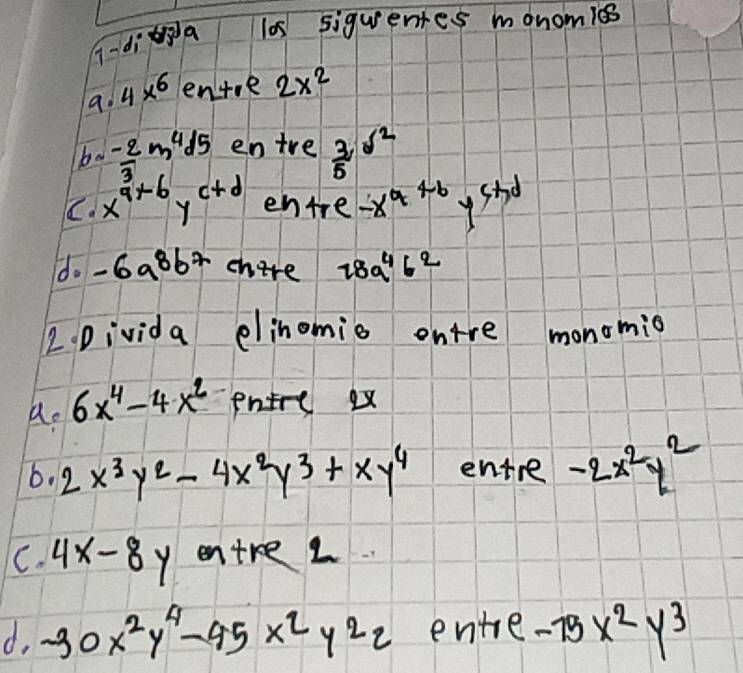 1-divida los siguientes monomios
a. 4x⁶ entre 2x²
b. -2/3 m⁴d5 entre 3/5 d²
c. x^(a+b) y^(c+d) entre -x^(a+b) y^(c+d)
d. -6a⁸b⁷ entre 18a⁴b²
2. Divida elinomio entre monomio
a. 6x⁴-4x² entre 2x
b. 2x³y²-4x²y³+xy⁴ entre -2x²y²
c. 4x-8y entre 2
d. -30x²y⁴-45x²y²z entre -15x²y³